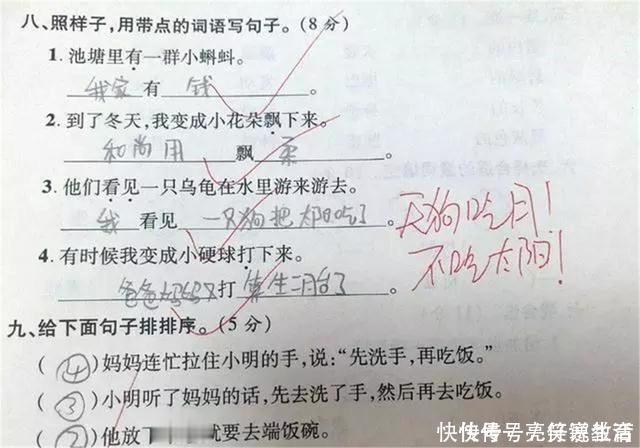 八、照样子,用带点的词语写句子。(8分)
1. 池塘里有一群小蝌蚪。
我家 有 钱 。
2. 到了冬天,我变成小花朵飘下来。
和尚用 飘柔 。
3. 他们看见一只乌龟在水里游来游去。
我 看见 一只狗把太阳吃了 。
天狗吃月!
不吃太阳!
4. 有时候我变成小硬球打下来。
爸爸妈妈又打 算生二月台了 。
九、给下面句子排排序。(5分)
(④)妈妈连忙拉住小明的手,说:“先洗手,再吃饭。”
(③)小明听了妈妈的话,先去洗了手,然后再去吃饭。
(②)他放下 就要去端饭碗。